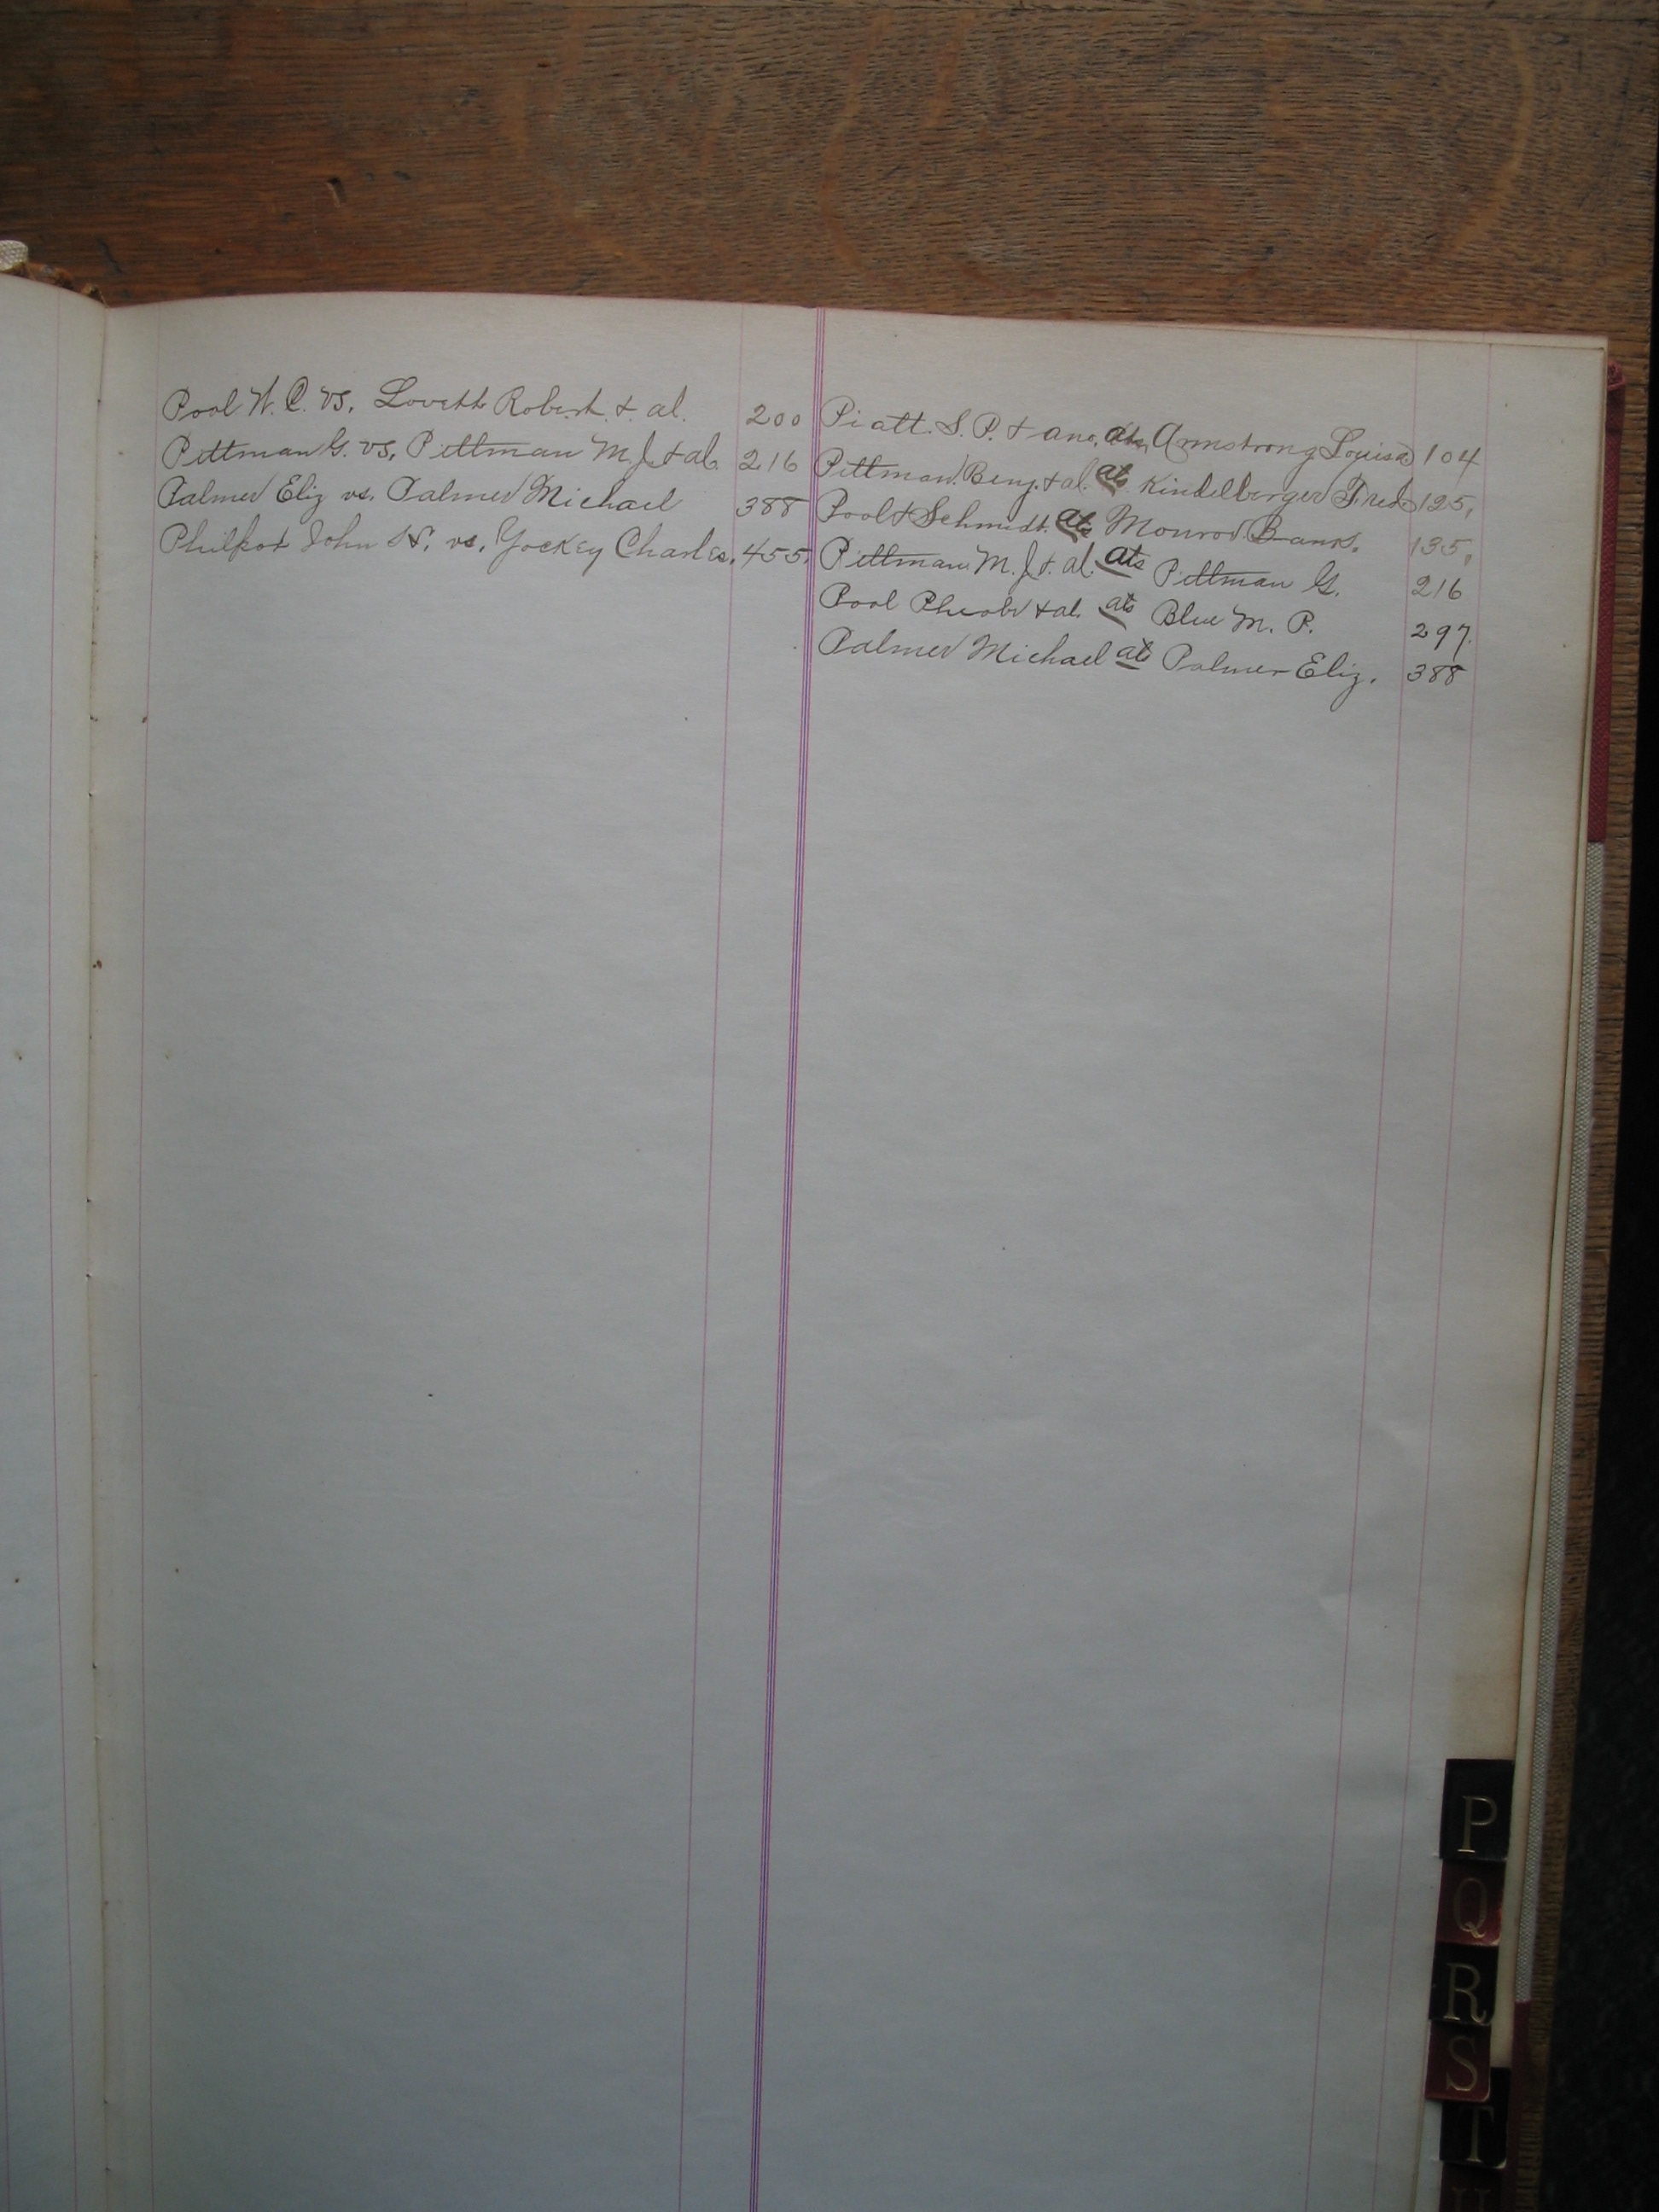 Pool W. C. vs. Lovett Robert. & al. 200
Pittman G. vs. Pittman M. J. & al. 216
Palmer Eliz vs. Palmer Michael 388
Philpot John N. vs. Yockey Charles. 455.
Piatt. S. P. & ano. ats Armstrong Louisa 104
Pittman Benj. & al. ats Kindelberger Fred 125,
Pool & Schmidt. ats Monroe Bank. 135,
Pittman M. J. & al. ats Pittman G. 216
Pool Pheobe & al. ats Blue M. P. 297.
Palmer Michael ats Palmer Eliz. 388
P
Q
R
S
T